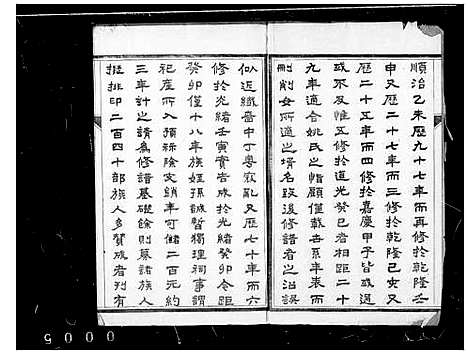 順治乙未歷九十七年而再修於乾隆壬
申又歷二十七年而三修於乾隆己亥又
歷二十五年而四修於嘉慶甲子皆或過
或不及惟五修於道光癸巳者相距二十
九年適合姚氏之惜願僅載世系年表而
刪削女所適之壻名致後修譜者之沿誤
似近纖嗇中丁粵寇亂又歷七十年而六
修於光緒壬寅告成於光緒癸卯令距
癸卯僅十八年族姪孫誠暫獨理祠事謂
祀產所入預裖除支銷年可儲二百元約
三年計之請為修譜基礎餘則募諸族人
擬排印二百四十部族人多贊成者刊有
0005